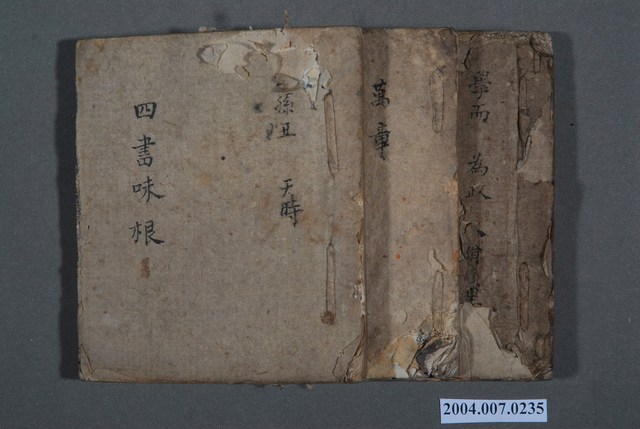 四書味根
孫丑 天時
萬章
學而 為政 八佾 里
2004.007.0235